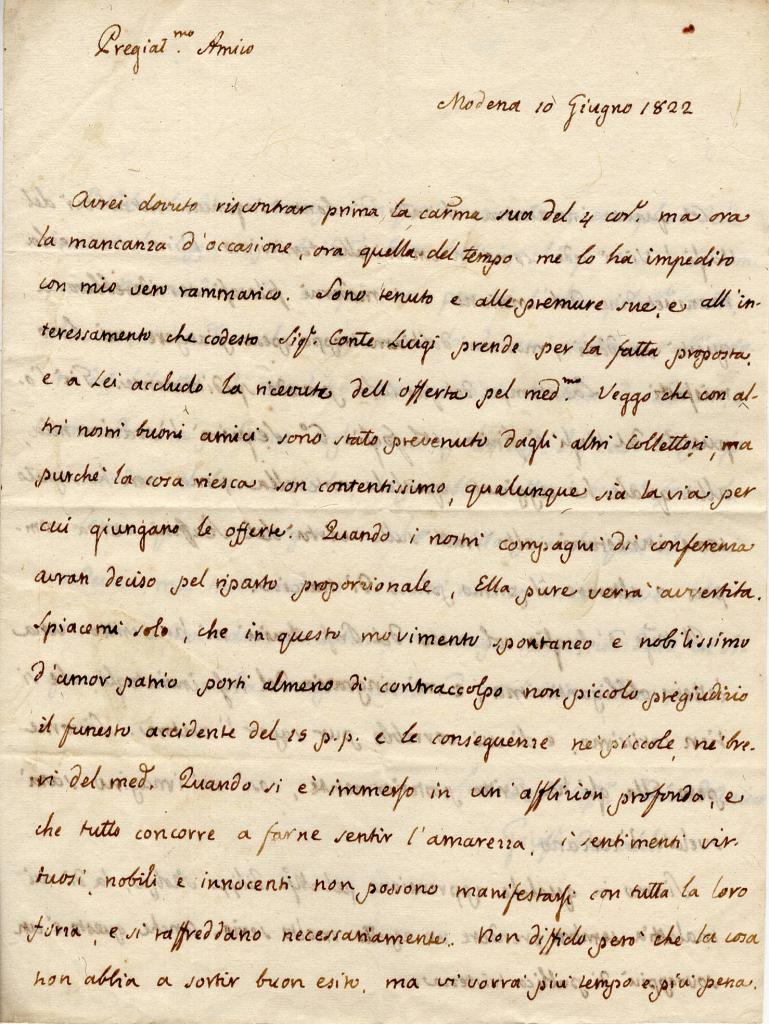 Pregiat.mo Amico
Modena 10 Giugno 1822
Avrei dovuto riscontrar prima la car.ma sua del 4 cor.e ma ora
la mancanza d'occasione, ora quella del tempo me lo ha impedito
con mio vero rammarico. Sono tenuto e alle premure sue, e all'in-
teressamento che codesto Sig.r Conte Luigi prende per la fatta proposta,
e a Lei accludo la ricevuta dell'offerta pel med.mo Veggo che con al-
tri nostri buoni amici sono stato prevenuto dagli altri Collettori, ma
purché la cosa riesca son contentissimo, qualunque sia la via per
cui giungano le offerte. Quando i nostri compagni di conferenza
avran deciso pel riparto proporzionale, Ella pure verrà avvertita.
Spiacemi solo, che in questo movimento spontaneo e nobilissimo
d'amor patrio porti almeno di contraccolpo non piccolo pregiudizio
il funesto accidente del 15 p.p. e le conseguenze né piccole, né bre-
vi del med. Quando si è immerso in un'afflizion profonda, e
che tutto concorre a farne sentir l'amarezza, i sentimenti vir-
tuosi, nobili e innocenti non possono manifestarsi con tutta la loro
forza, e si raffreddano necessariamente. Non diffido però che la cosa
non abbia a sortir buon esito, ma vi vorrà più tempo e più pena.